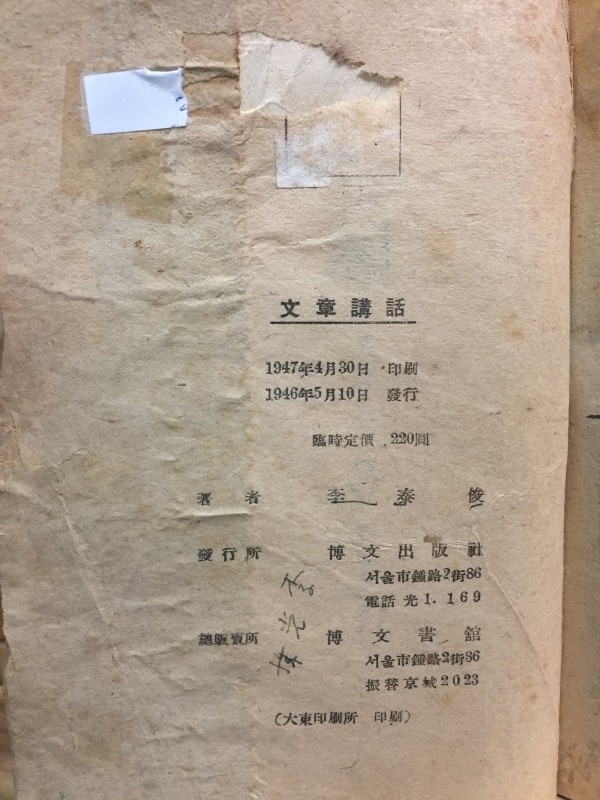 文章講話
1947年4月30日 印刷
1946年5月10日 發行
臨時定價 220圓
著者 李泰俊
發行所 博文出版社
서울市鍾路2街86
電話 光1. 169
總販賣所 博文書舘
서울市鍾路2街86
振替京城2023
(大東印刷所 印刷)